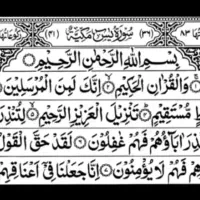 (٣٦) سُوْرَةُ يٰسٓ مَكِّيَّةٌ (٤١)
بِسْمِ اللهِ الرَّحْمٰنِ الرَّحِيْمِ
وَالْقُرْاٰنِ الْحَكِيْمِ ۝ اِنَّكَ لَمِنَ الْمُرْسَلِيْنَ
طٍ مُّسْتَقِيْمٍ ۝ تَنْزِيْلَ الْعَزِيْزِ الرَّحِيْمِ ۝ لِتُنْذِرَ
ذِرَ اٰبَآؤُهُمْ فَهُمْ غٰفِلُوْنَ ۝ لَقَدْ حَقَّ الْقَوْلُ
هِمْ فَهُمْ لَا يُؤْمِنُوْنَ ۝ اِنَّا جَعَلْنَا فِىْٓ اَعْنَاقِهِمْ